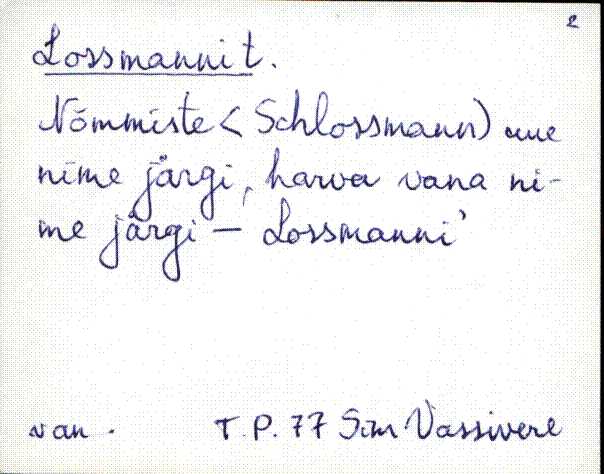 2
Lossmanni t.
Nõmmiste < Schlossmann) uue
nime järgi, harva vana ni-
me järgi – Lossmanni'
van. T.P. 77 Sim Vassivere